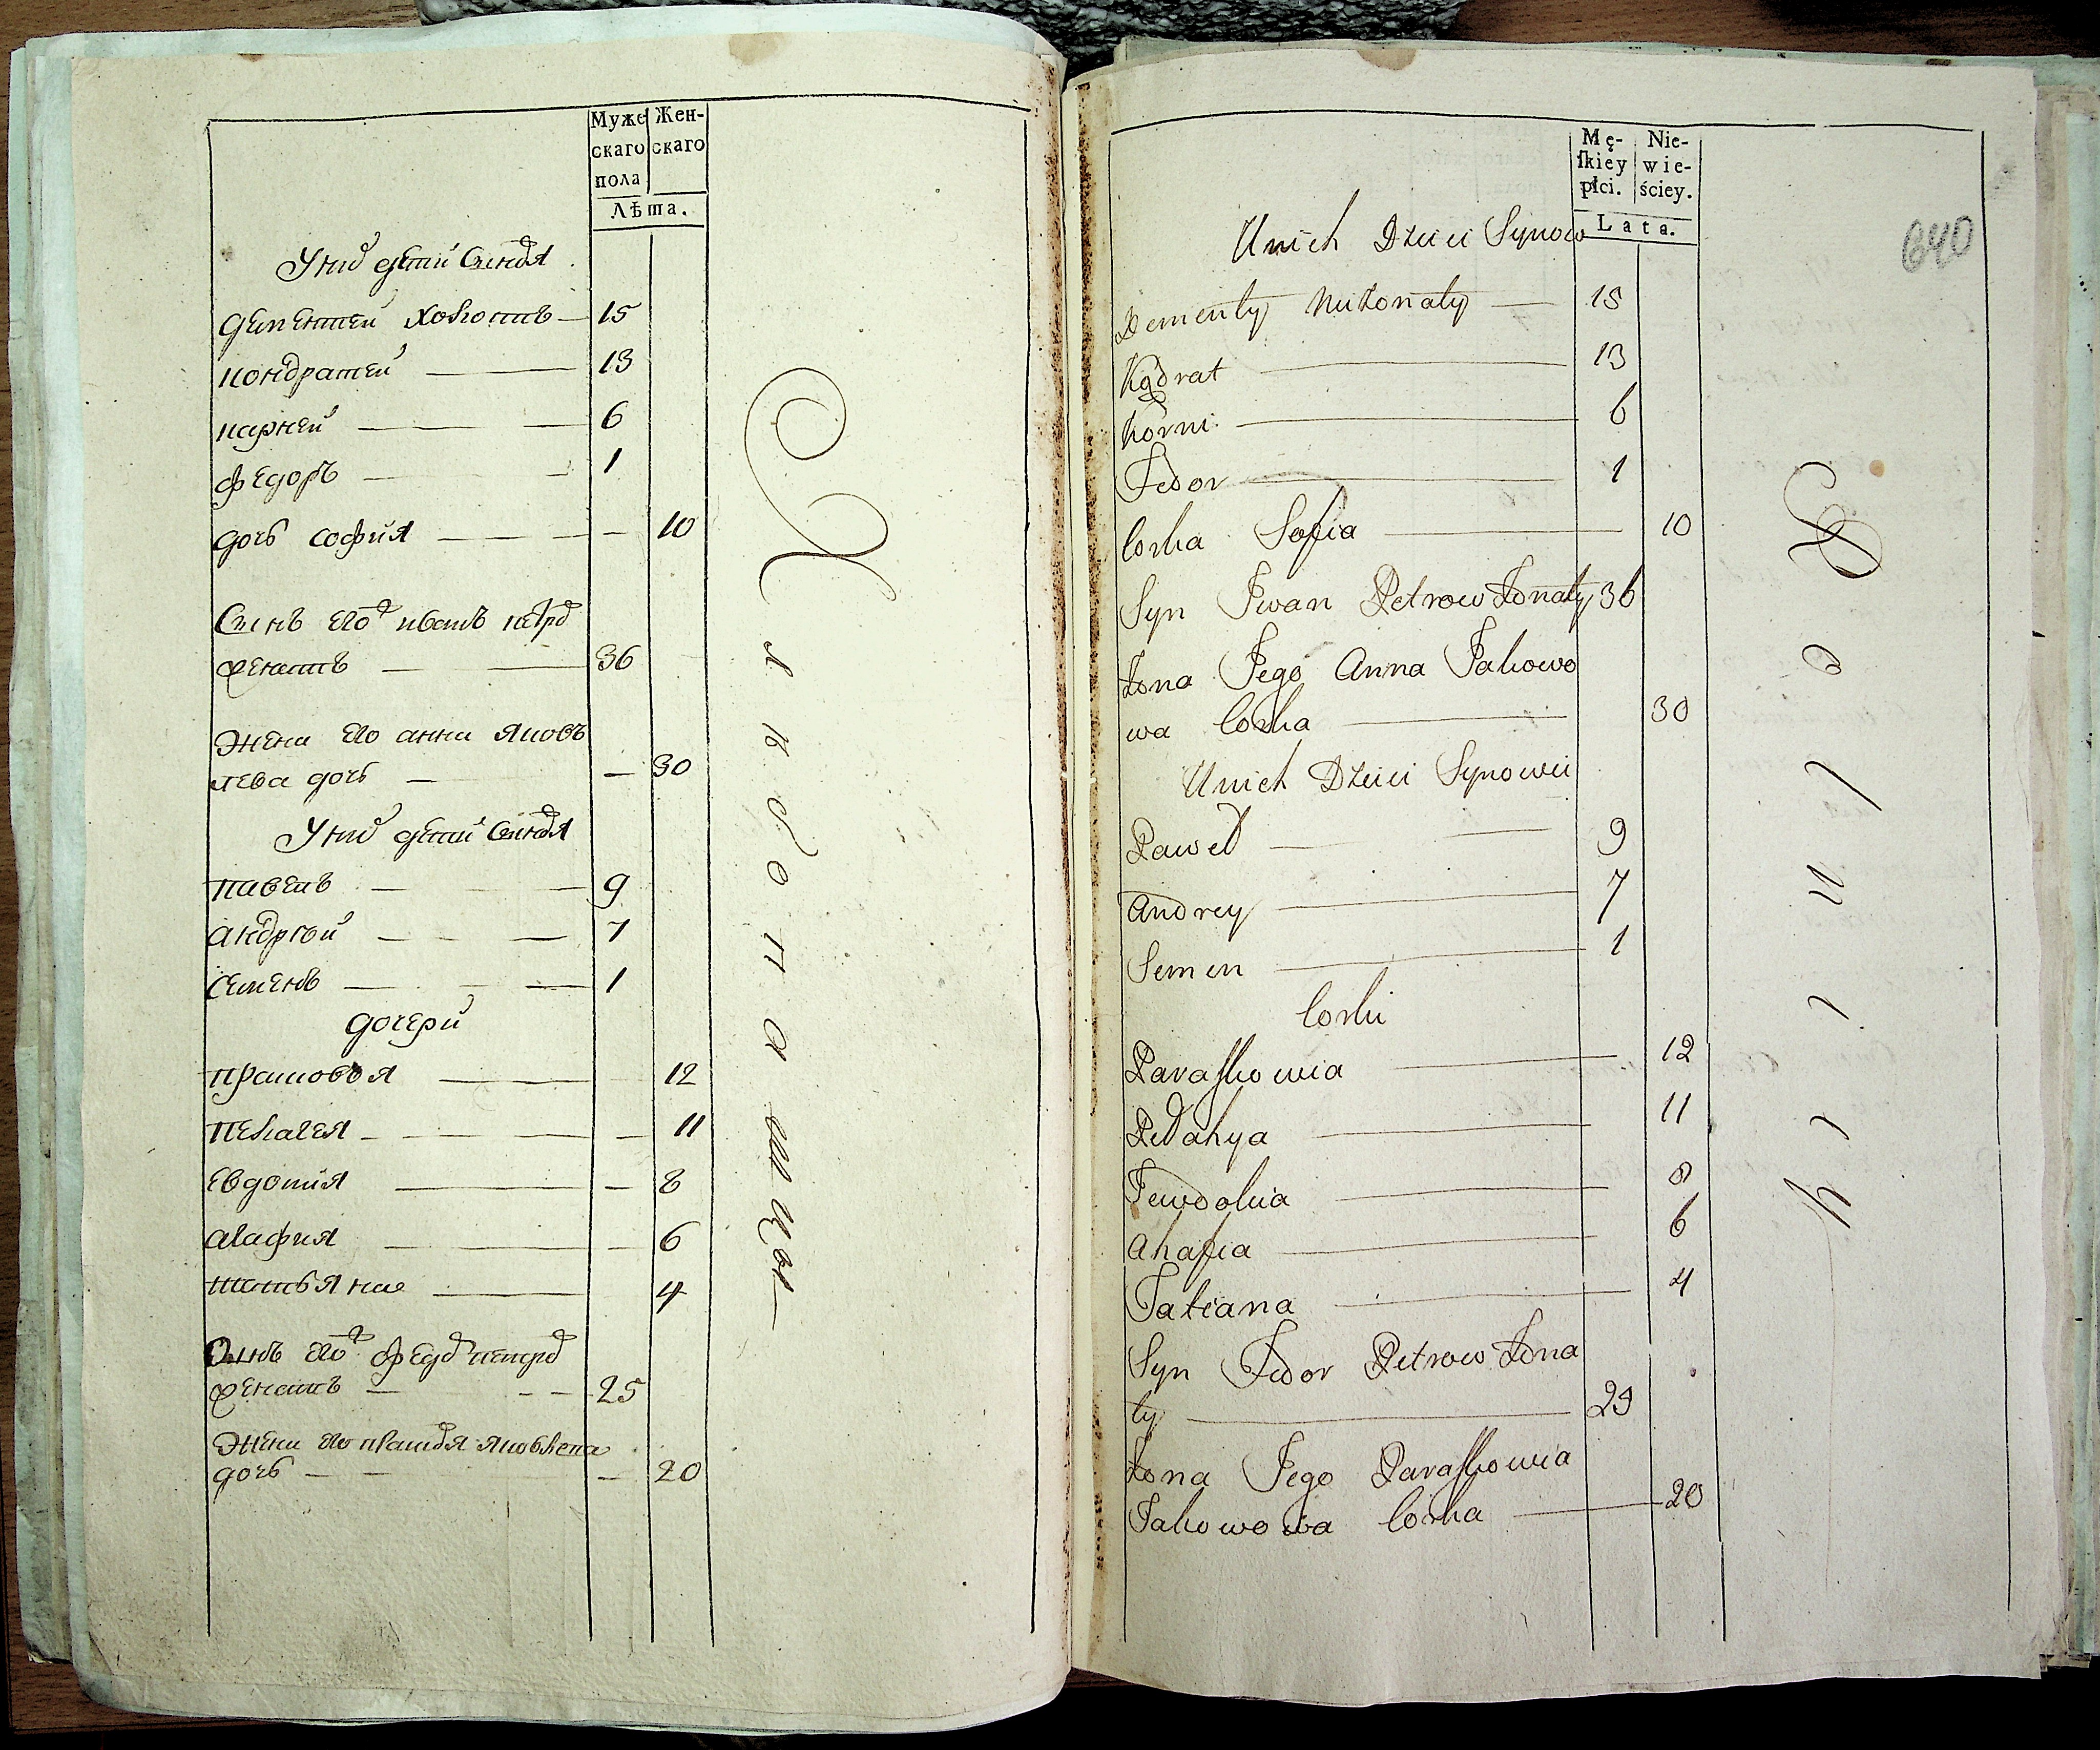 Муже
скаго
пола
Жен-
скаго
Лѣта.
У них дети Синовя
дементей холость — 15
кондратей — 13
карней — 6
федоръ — 1
дочь софия — 10
Синъ его иванъ петров
женатъ — 36
Жена его анна яков
лева дочь — 30
У них дети Синовя
павелъ — 9
андрей — 7
Семенъ — 1
дочери
прасковья — 12
пелагея — 11
евдокия — 8
агафия — 6
татьяна — 4
Синъ его федор петров
женатъ — 25
Жена его яковлева
дочь — 20
Хлебопашцы
Mę-
ſkiey
płci.
Nie-
wie-
ściey.
Lata.
640
Unich Dzieci Synow
Dementy Nieżonaty — 15
Kądrat — 13
Korni — 6
Fedor — 1
Corka Sofia — 10
Syn Iwan Petrow Żonaty 36
Żona Jego Anna Jakowo
wa Corka — 30
Unich Dzieci Synowie
Paweł — 9
Andrey — 7
Semen — 1
Corki
Paraſkowia — 12
Pełahya — 11
Jewdokia — 8
Ahafia — 6
Tatiana — 4
Syn Fedor Petrow Żona
ty — 29
Żona Jego Paraſkowia
Jakowowa Corka — 20
Rolnicy